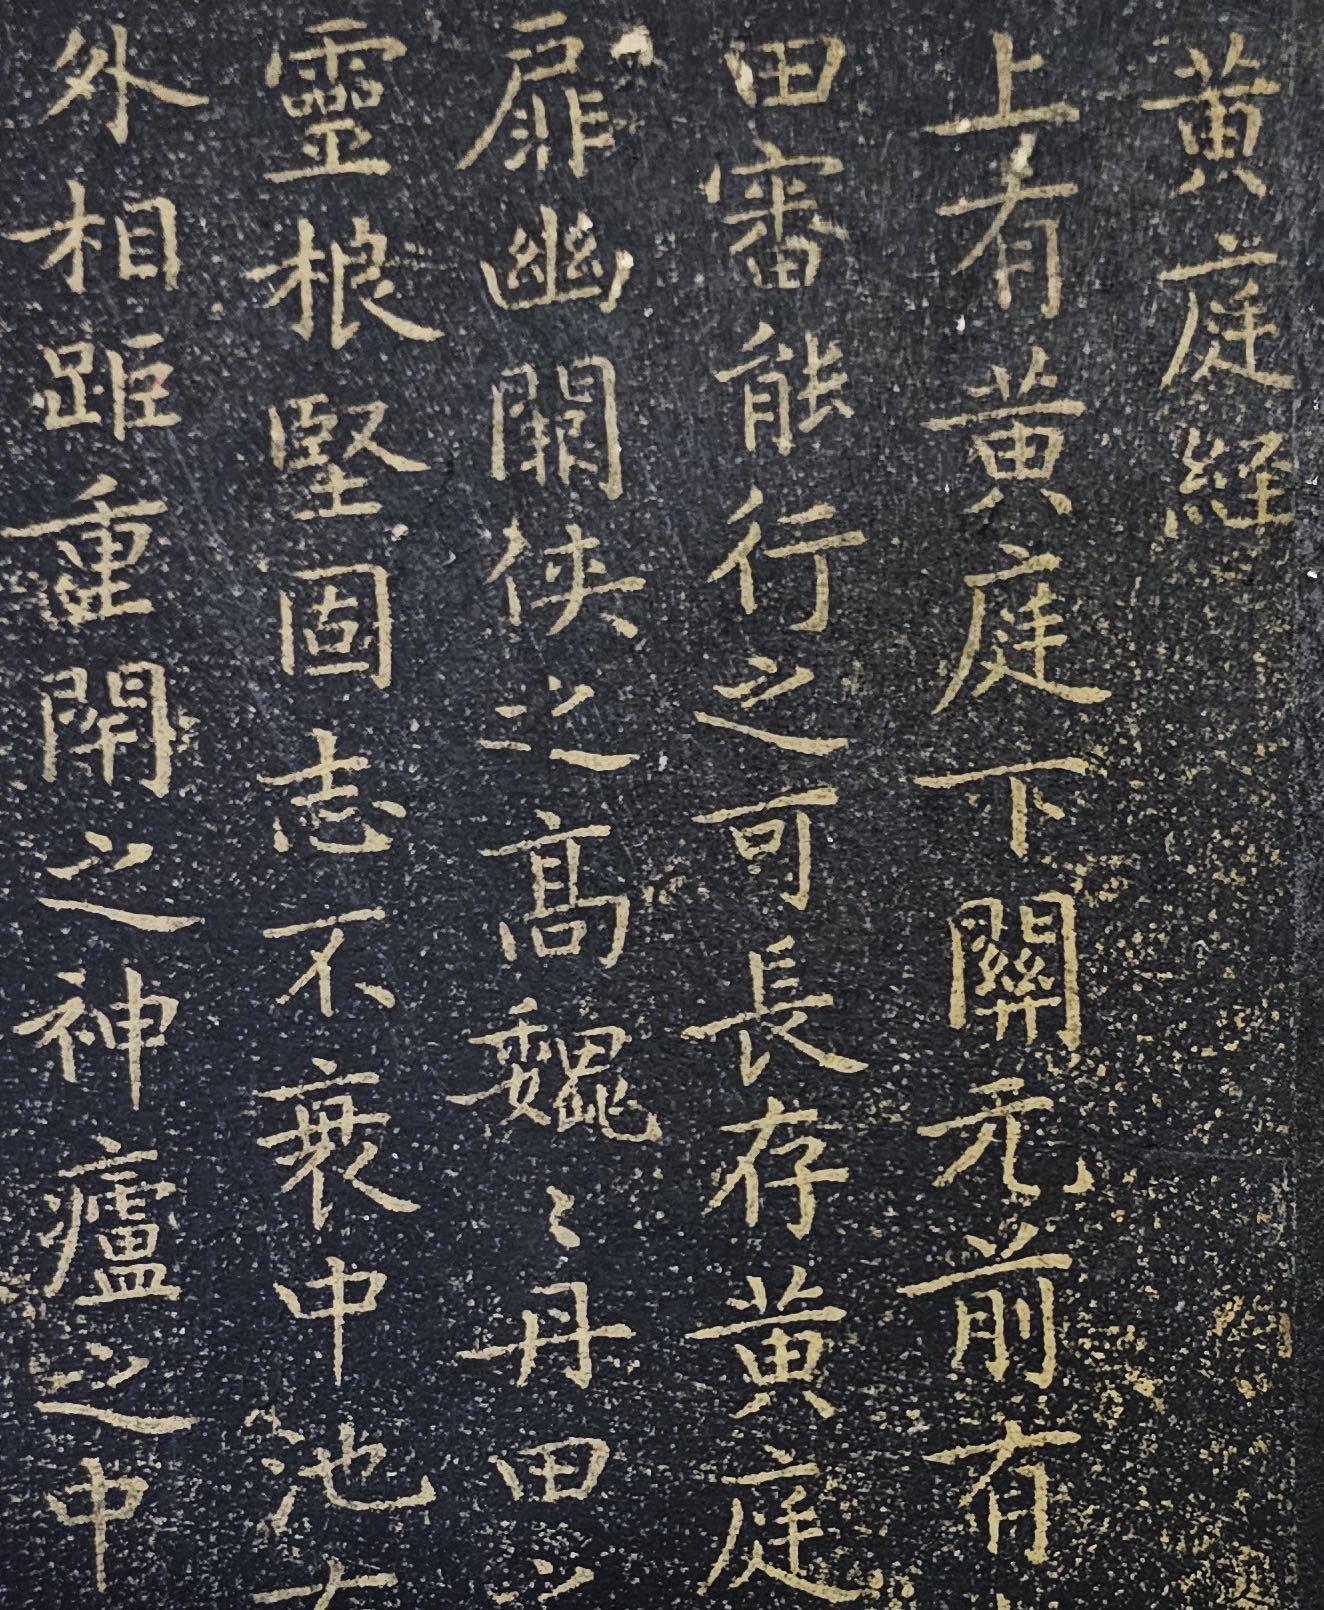 黄庭經
上有黄庭下關元前有
田審能行之可長存黄庭
扉幽關侠之高魏〻丹田之
靈根堅固志不衰中池有
外相距重閉之神廬之中